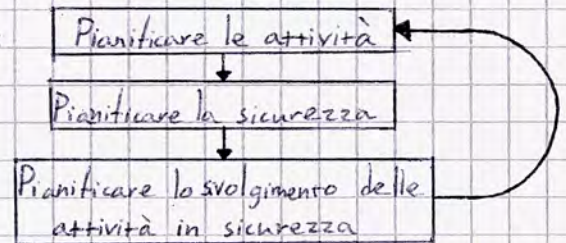 Pianificare le attività
Pianificare la sicurezza
Pianificare lo svolgimento delle
attività in sicurezza